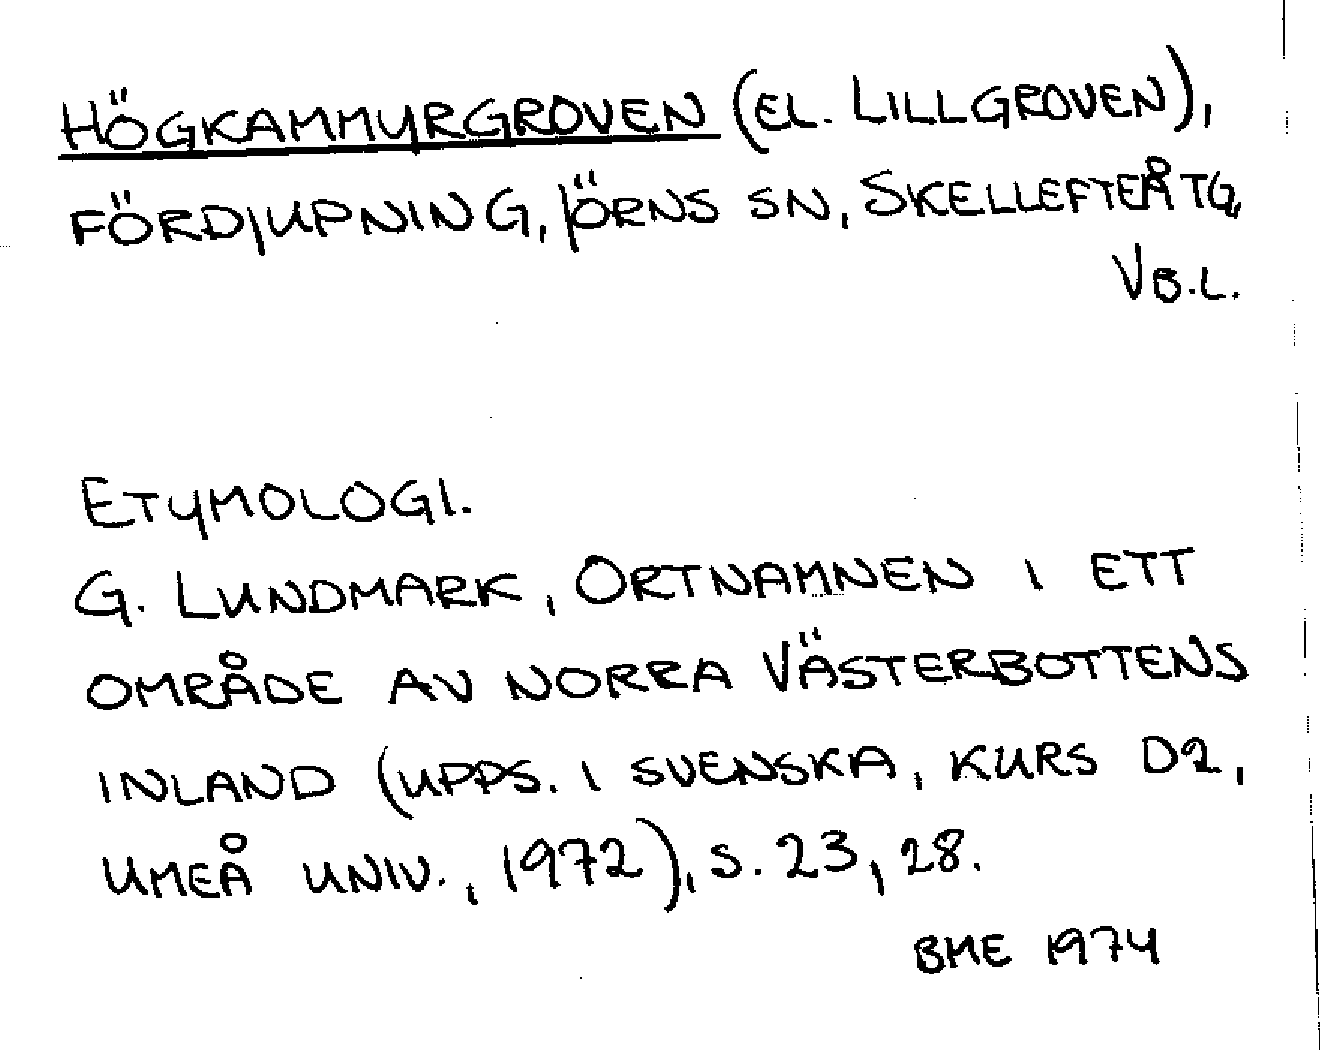 HÖGKAMMYRGROVEN (EL. LILLGROVEN),
FÖRDJUPNING, JÖRNS SN, SKELLEFTEÅ TG,
VB.L.
ETYMOLOGI.
G. LUNDMARK, ORTNAMNEN I ETT
OMRÅDE AV NORRA VÄSTERBOTTENS
INLAND (UPPS. I SVENSKA, KURS D2,
UMEÅ UNIV., 1972), S. 23, 28.
BME 1974